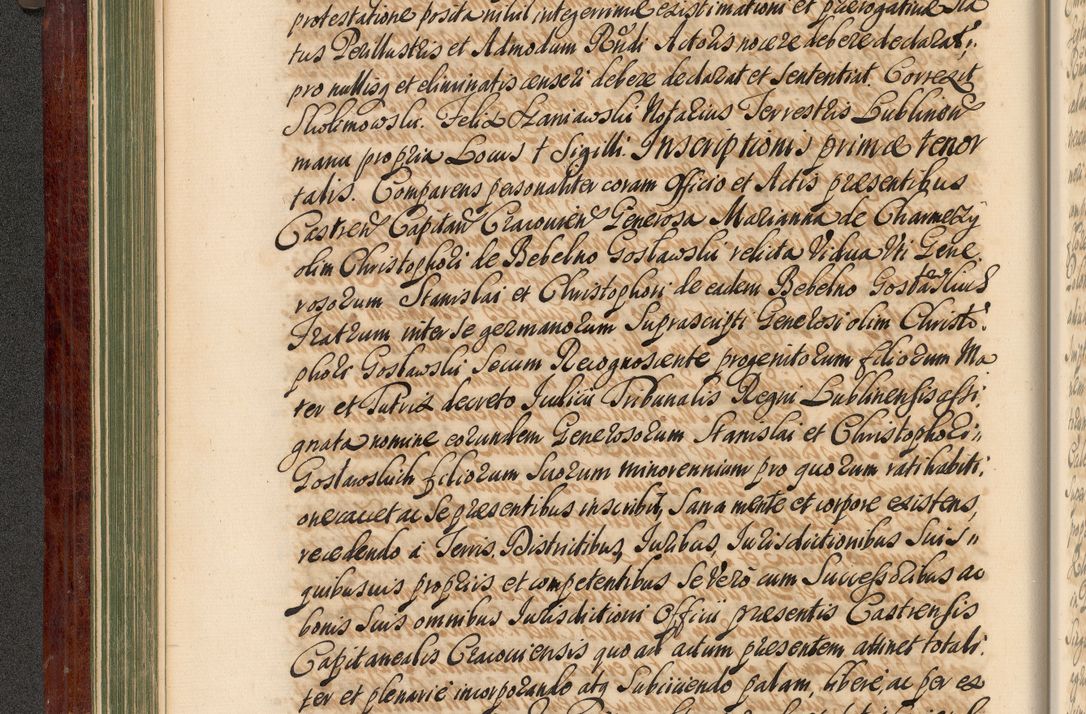 protestatione posita nihil integerrimae existimationi et praerogativae sta
tus Perillustris et Admodum Rndi Actoris nocere debere declarat,,
pro nullisq et eliminatis censeri debere declarat et sententiat. Correxit
Skolimowski. Felix Staniawski Notarius Terrestris Lublinen
manu propria Locus † Sigilli. Inscriptionis primae tenor
talis. Comparens personaliter coram Officio et Actis praesentibus
Castren Capitan Cracovien Generosa Marianna de Charmęzy
olim Christophori de Bebelno Gosławski relicta Vidua Uti Gene
rosorum Stanislai et Christophori de eadem Bebelno Gosławskich
Fratrum inter se germanorum Suprascripti Generosi olim Christo:
phori Gosławski Secum Recognoscente progenitorum filiorum Ma
ter et Tutrix decreto Iudicii Tribunalis Regni Lublinensis assi:
gnata nomine eorundem Generosorum Stanislai et Christophori,,
Gosławskich filiorum Suorum minorennium pro quorum ratihabiti:
one cavet ac Se praesentibus inscribit, Sana mente et corpore existens,
recedendo a Terris, Districtibus, Iuribus, Iurisdictionibus Suis,,
quibusvis propriis et competentibus Se Verò cum Successoribus ac
bonis Suis omnibus Iurisdictioni Officii praesentis Castrensis
Capitanealis Cracoviensis quo ad actum praesentem attinet totali:
ter et plenarie incorporando atq Subiiciendo palam, libere, ac per ex